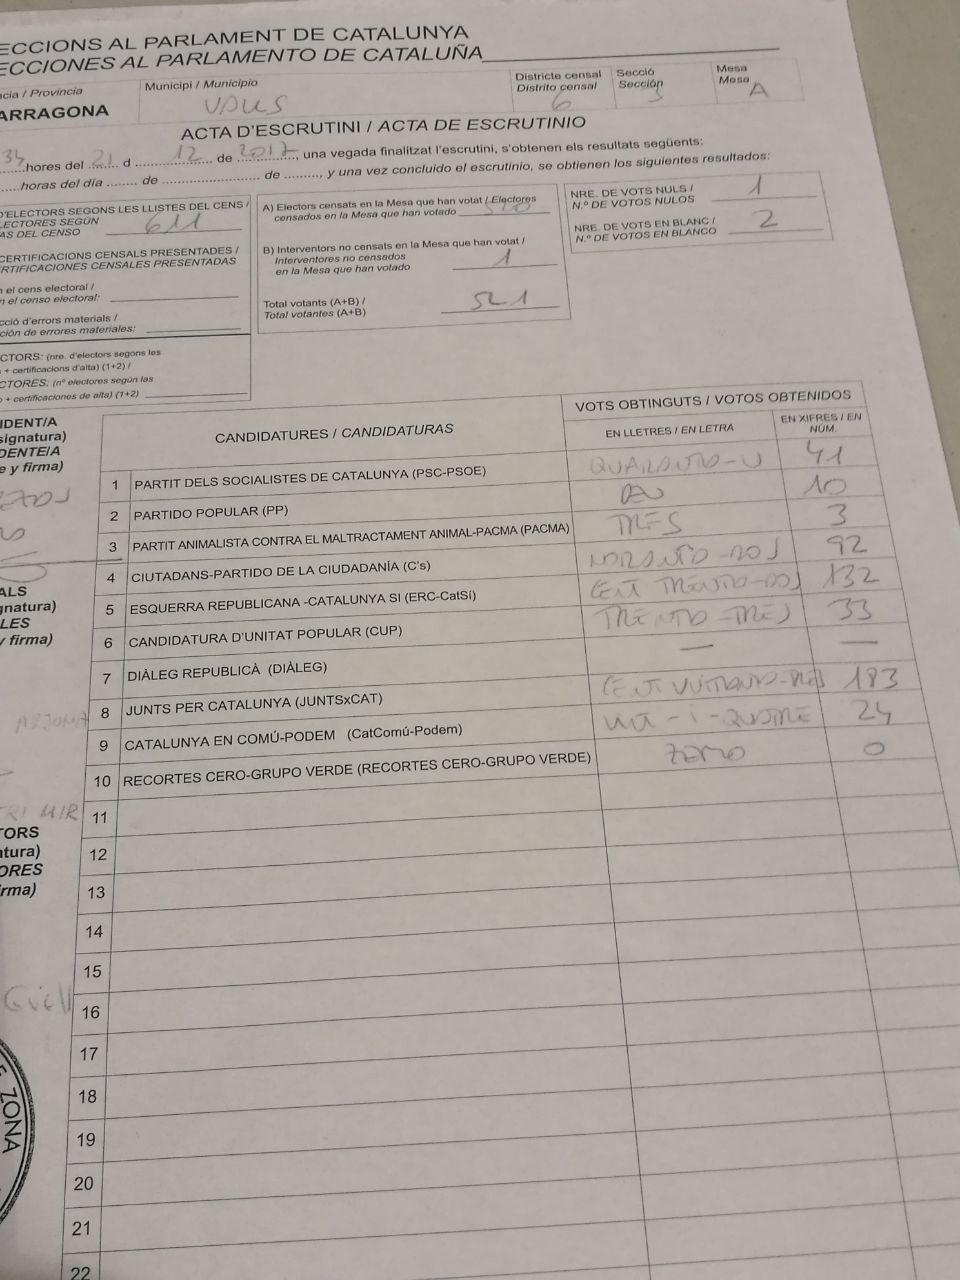 ECCIONS AL PARLAMENT DE CATALUNYA
ECCIONES AL PARLAMENTO DE CATALUÑA
ncia / Provincia
ARRAGONA
Municipi / Municipio
VALLS
Districte censal
Distrito censal
6
Secció
Sección
Mesa
Mesa
A
ACTA D'ESCRUTINI / ACTA DE ESCRUTINIO
34 hores del 21 d 12 de 2017, una vegada finalitzat l'escrutini, s'obtenen els resultats següents:
horas del día ........ de ........................ de ........., y una vez concluido el escrutinio, se obtienen los siguientes resultados:
D'ELECTORS SEGONS LES LLISTES DEL CENS /
LECTORES SEGÚN
AS DEL CENSO 611
CERTIFICACIONS CENSALS PRESENTADES /
RTIFICACIONES CENSALES PRESENTADAS
n el cens electoral /
n el censo electoral:
cció d'errors materials /
ción de errores materiales:
CTORS: (nre. d'electors segons les
+ certificacions d'alta) (1+2) /
CTORES: (nº electores según las
o + certificaciones de alta) (1+2)
A) Electors censats en la Mesa que han votat / Electores
censados en la Mesa que han votado 520
B) Interventors no censats en la Mesa que han votat /
Interventores no censados
en la Mesa que han votado 1
Total votants (A+B) /
Total votantes (A+B) 521
NRE. DE VOTS NULS /
N.º DE VOTOS NULOS 1
NRE. DE VOTS EN BLANC /
N.º DE VOTOS EN BLANCO 2
IDENT/A
signatura)
DENTE/A
e y firma)
ALS
gnatura)
LES
y firma)
ARJONA
MIR
TORS
atura)
ORES
rma)
Güell
ZONA
CANDIDATURES / CANDIDATURAS
VOTS OBTINGUTS / VOTOS OBTENIDOS
EN LLETRES / EN LETRA
EN XIFRES / EN
NÚM.
1 PARTIT DELS SOCIALISTES DE CATALUNYA (PSC-PSOE) QUARANTA-U 41
2 PARTIDO POPULAR (PP) DEU 10
3 PARTIT ANIMALISTA CONTRA EL MALTRACTAMENT ANIMAL-PACMA (PACMA) TRES 3
4 CIUTADANS-PARTIDO DE LA CIUDADANÍA (C's) NORANTA-DOS 92
5 ESQUERRA REPUBLICANA -CATALUNYA SI (ERC-CatSí) CENT TRENTA-DOS 132
6 CANDIDATURA D'UNITAT POPULAR (CUP) TRENTA-TRES 33
7 DIÀLEG REPUBLICÀ (DIÀLEG) — —
8 JUNTS PER CATALUNYA (JUNTSxCAT) CENT VUITANTA-TRES 183
9 CATALUNYA EN COMÚ-PODEM (CatComú-Podem) VINT-I-QUATRE 24
10 RECORTES CERO-GRUPO VERDE (RECORTES CERO-GRUPO VERDE) ZERO 0
11
12
13
14
15
16
17
18
19
20
21
22